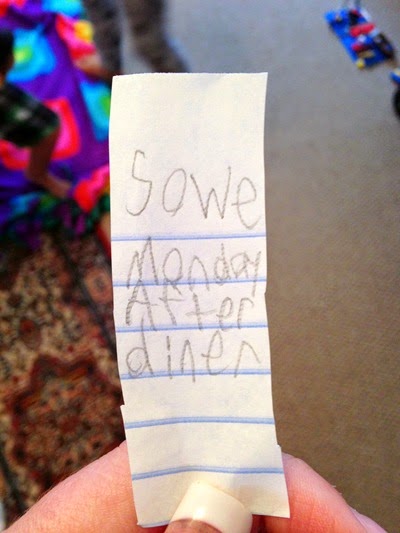 Sowe
Monday
After
diner